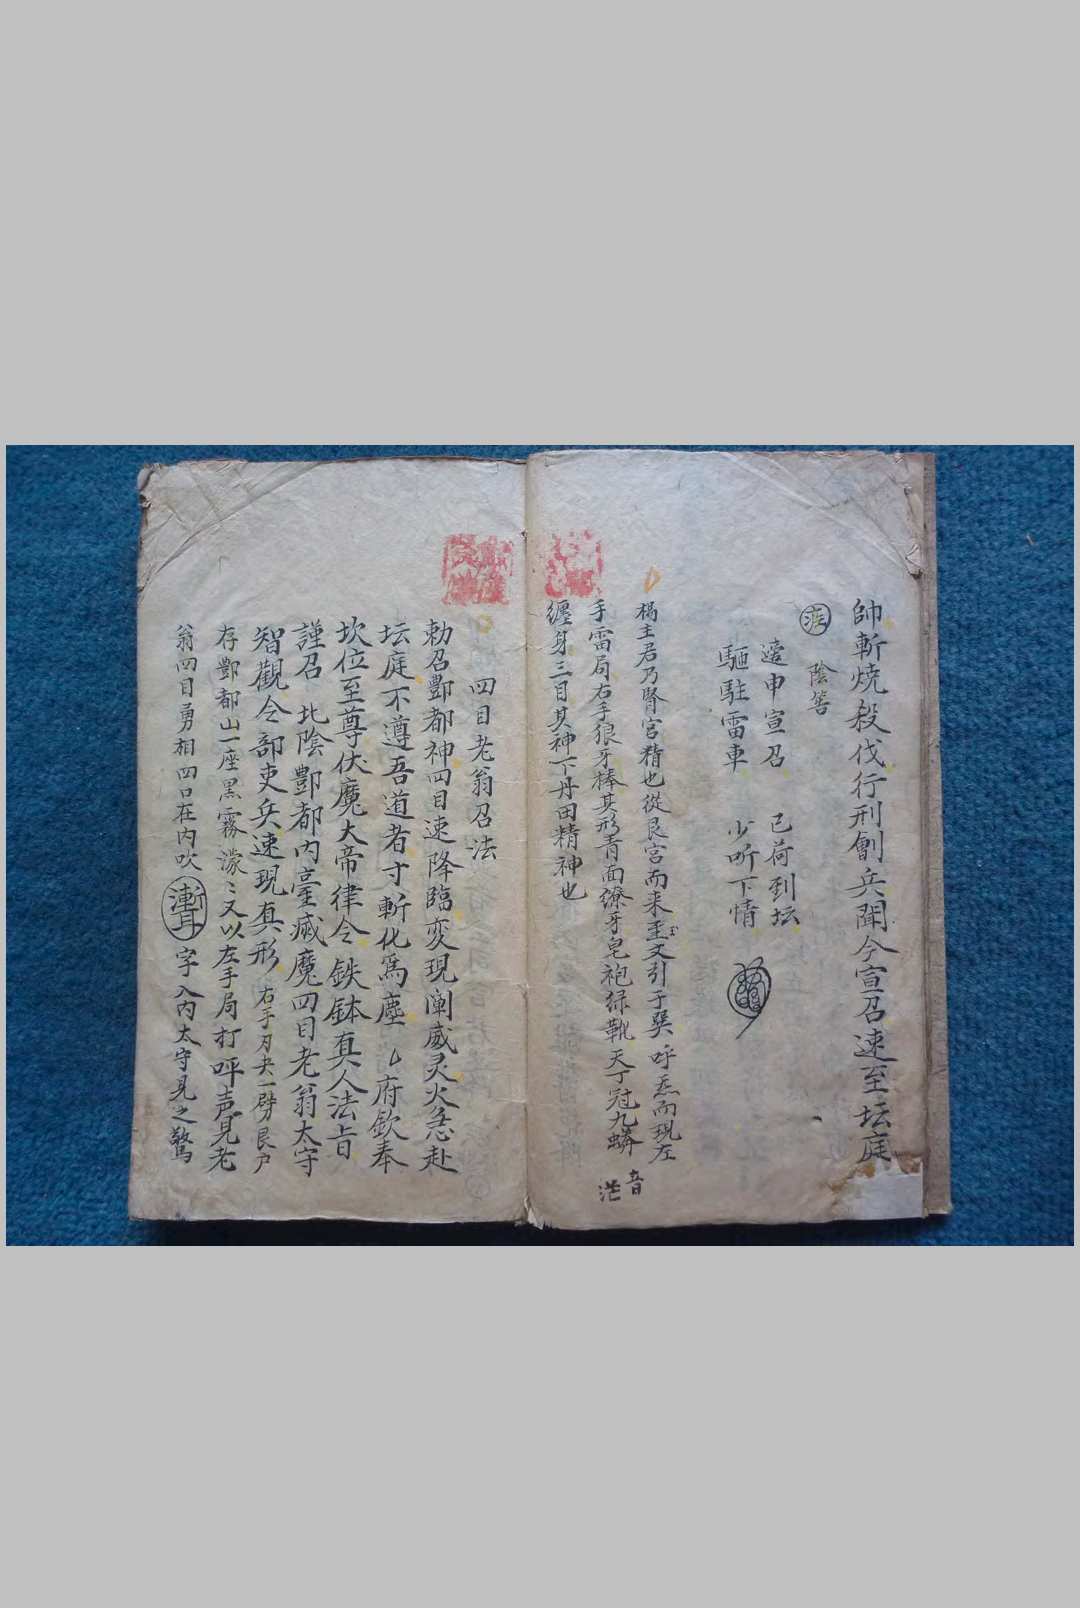 帥斬燒殺伐行刑劊兵聞今宣召速至坛庭
陰筈
遙申宣召 已荷到坛
驅駐雷車 少听下情
楊主君乃腎宮精也從艮宮而来至文引子巽呼炁而現左
手雷局右手狼牙棒其形青面獠牙皂袍绿靴天丁冠九蟒
音
茫
纏身三目其神下丹田精神也
四目老翁召法
勅召酆都神四目速降臨变現阐威灵火急赴
坛庭不遵吾道者寸斬化為塵 府欽奉
坎位至尊伏魔大帝律令鉄鉢真人法旨
謹召 北陰酆都内臺馘魔四目老翁太守
智觀令部吏兵速現真形 右手刃夬一劈艮户
存酆都山一座黑霧濛〻又以左手局打呼声見老
翁四目勇相四口在内吹 字入内太守見之驚